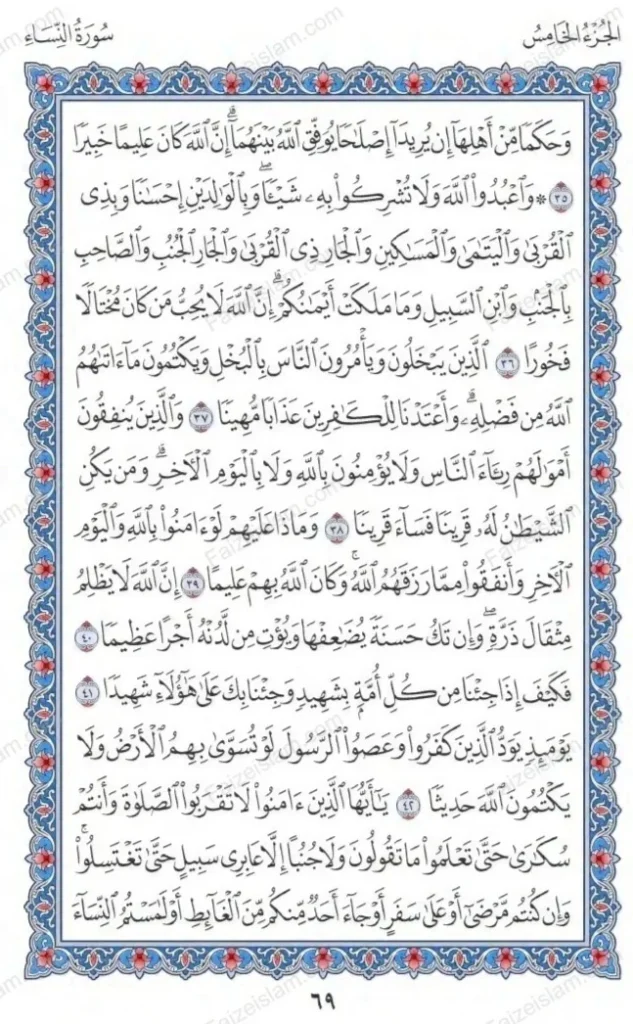 الجُزْءُ الخَامِسُ
سُورَةُ النِّسَاءِ
وَحَكَمًا مِّنْ أَهْلِهَآ إِن يُرِيدَآ إِصْلَٰحًا يُوَفِّقِ ٱللَّهُ بَيْنَهُمَآ ۗ إِنَّ ٱللَّهَ كَانَ عَلِيمًا خَبِيرًا
٣٥ * وَٱعْبُدُوا۟ ٱللَّهَ وَلَا تُشْرِكُوا۟ بِهِۦ شَيْـًٔا ۖ وَبِٱلْوَٰلِدَيْنِ إِحْسَٰنًا وَبِذِى
ٱلْقُرْبَىٰ وَٱلْيَتَٰمَىٰ وَٱلْمَسَٰكِينِ وَٱلْجَارِ ذِى ٱلْقُرْبَىٰ وَٱلْجَارِ ٱلْجُنُبِ وَٱلصَّاحِبِ
بِٱلْجَنۢبِ وَٱبْنِ ٱلسَّبِيلِ وَمَا مَلَكَتْ أَيْمَٰنُكُمْ ۗ إِنَّ ٱللَّهَ لَا يُحِبُّ مَن كَانَ مُخْتَالًا
فَخُورًا ٣٦ ٱلَّذِينَ يَبْخَلُونَ وَيَأْمُرُونَ ٱلنَّاسَ بِٱلْبُخْلِ وَيَكْتُمُونَ مَآ ءَاتَىٰهُمُ
ٱللَّهُ مِن فَضْلِهِۦ ۗ وَأَعْتَدْنَا لِلْكَٰفِرِينَ عَذَابًا مُّهِينًا ٣٧ وَٱلَّذِينَ يُنفِقُونَ
أَمْوَٰلَهُمْ رِئَآءَ ٱلنَّاسِ وَلَا يُؤْمِنُونَ بِٱللَّهِ وَلَا بِٱلْيَوْمِ ٱلْءَاخِرِ ۗ وَمَن يَكُنِ
ٱلشَّيْطَٰنُ لَهُۥ قَرِينًا فَسَآءَ قَرِينًا ٣٨ وَمَاذَا عَلَيْهِمْ لَوْ ءَامَنُوا۟ بِٱللَّهِ وَٱلْيَوْمِ
ٱلْءَاخِرِ وَأَنفَقُوا۟ مِمَّا رَزَقَهُمُ ٱللَّهُ ۚ وَكَانَ ٱللَّهُ بِهِمْ عَلِيمًا ٣٩ إِنَّ ٱللَّهَ لَا يَظْلِمُ
مِثْقَالَ ذَرَّةٍ ۖ وَإِن تَكُ حَسَنَةً يُضَٰعِفْهَا وَيُؤْتِ مِن لَّدُنْهُ أَجْرًا عَظِيمًا ٤٠
فَكَيْفَ إِذَا جِئْنَا مِن كُلِّ أُمَّةٍۭ بِشَهِيدٍ وَجِئْنَا بِكَ عَلَىٰ هَٰٓؤُلَآءِ شَهِيدًا ٤١
يَوْمَئِذٍ يَوَدُّ ٱلَّذِينَ كَفَرُوا۟ وَعَصَوُا۟ ٱلرَّسُولَ لَوْ تُسَوَّىٰ بِهِمُ ٱلْأَرْضُ وَلَا
يَكْتُمُونَ ٱللَّهَ حَدِيثًا ٤٢ يَٰٓأَيُّهَا ٱلَّذِينَ ءَامَنُوا۟ لَا تَقْرَبُوا۟ ٱلصَّلَوٰةَ وَأَنتُمْ
سُكَٰرَىٰ حَتَّىٰ تَعْلَمُوا۟ مَا تَقُولُونَ وَلَا جُنُبًا إِلَّا عَابِرِى سَبِيلٍ حَتَّىٰ تَغْتَسِلُوا۟ ۚ
وَإِن كُنتُم مَّرْضَىٰٓ أَوْ عَلَىٰ سَفَرٍ أَوْ جَآءَ أَحَدٌ مِّنكُم مِّنَ ٱلْغَآئِطِ أَوْ لَٰمَسْتُمُ ٱلنِّسَآءَ
٦٩
Faizeislam.com